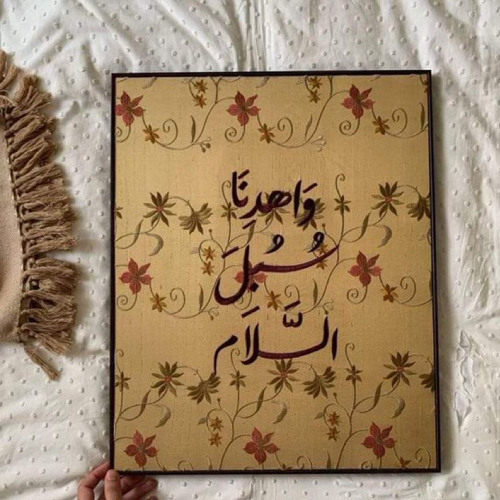 وَاهدِنَا
سُبُلَ
السَّلَام